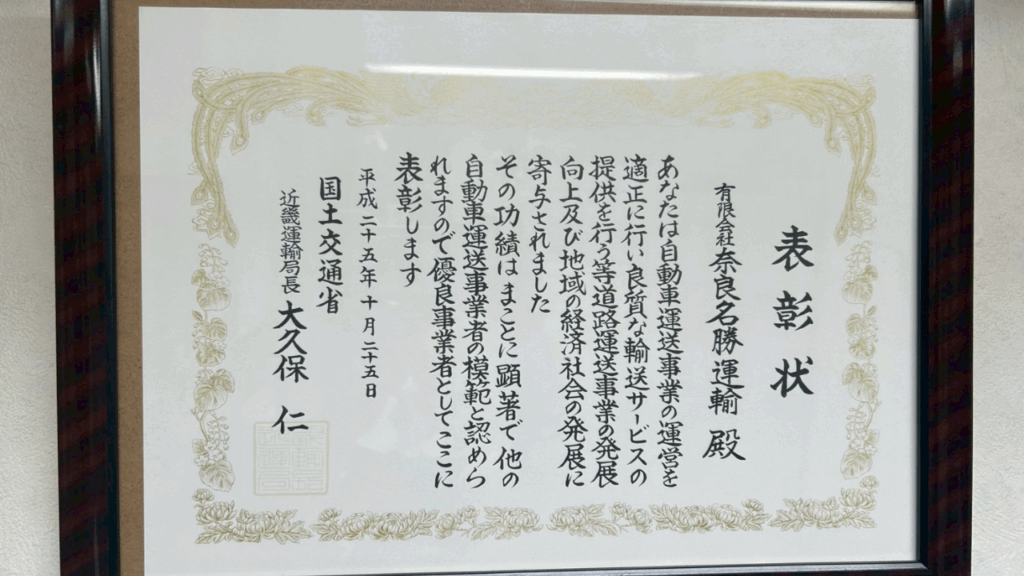 表彰状
有限会社奈良名勝運輸 殿
あなたは自動車運送事業の運営を
適正に行い良質な輸送サービスの
提供を行う等道路運送事業の発展
向上及び地域の経済社会の発展に
寄与されました
その功績はまことに顕著で他の
自動車運送事業者の模範と認めら
れますので優良事業者としてここに
表彰します
平成二十五年十月二十五日
国土交通省
近畿運輸局長 大久保 仁